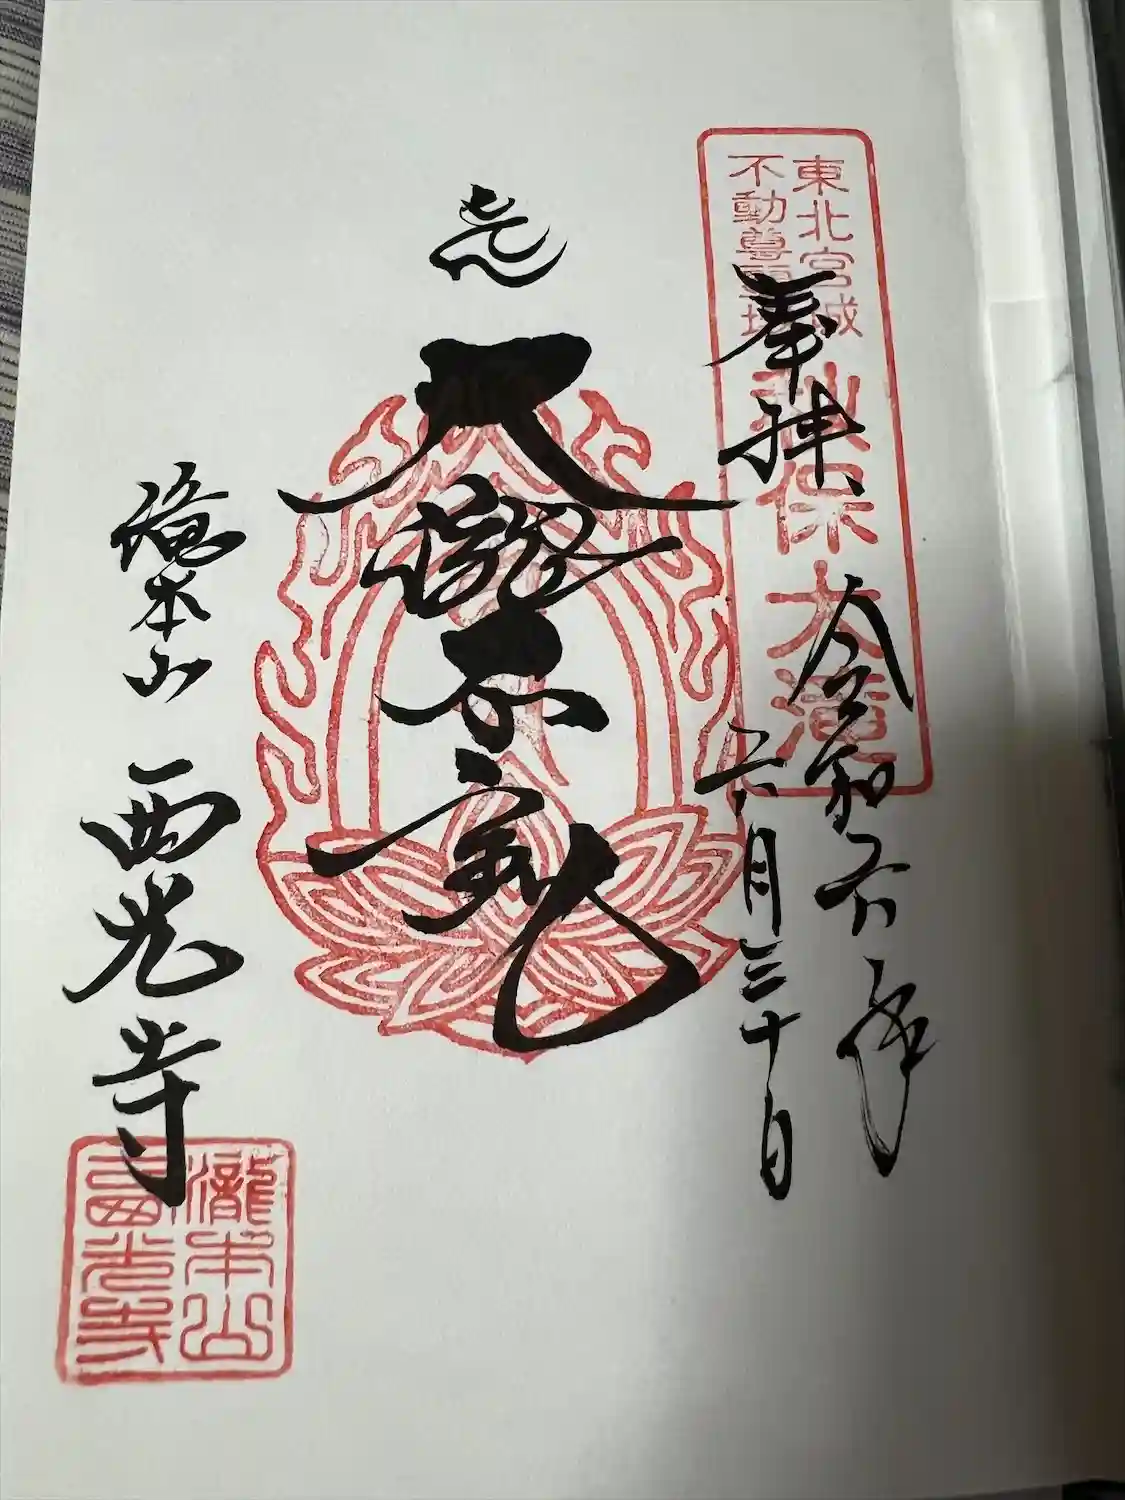 東北宮城
不動尊霊場
秋保大滝
奉拝
令和六年
六月三十日
大聖不動
滝本山
西光寺
瀧本山
西光寺